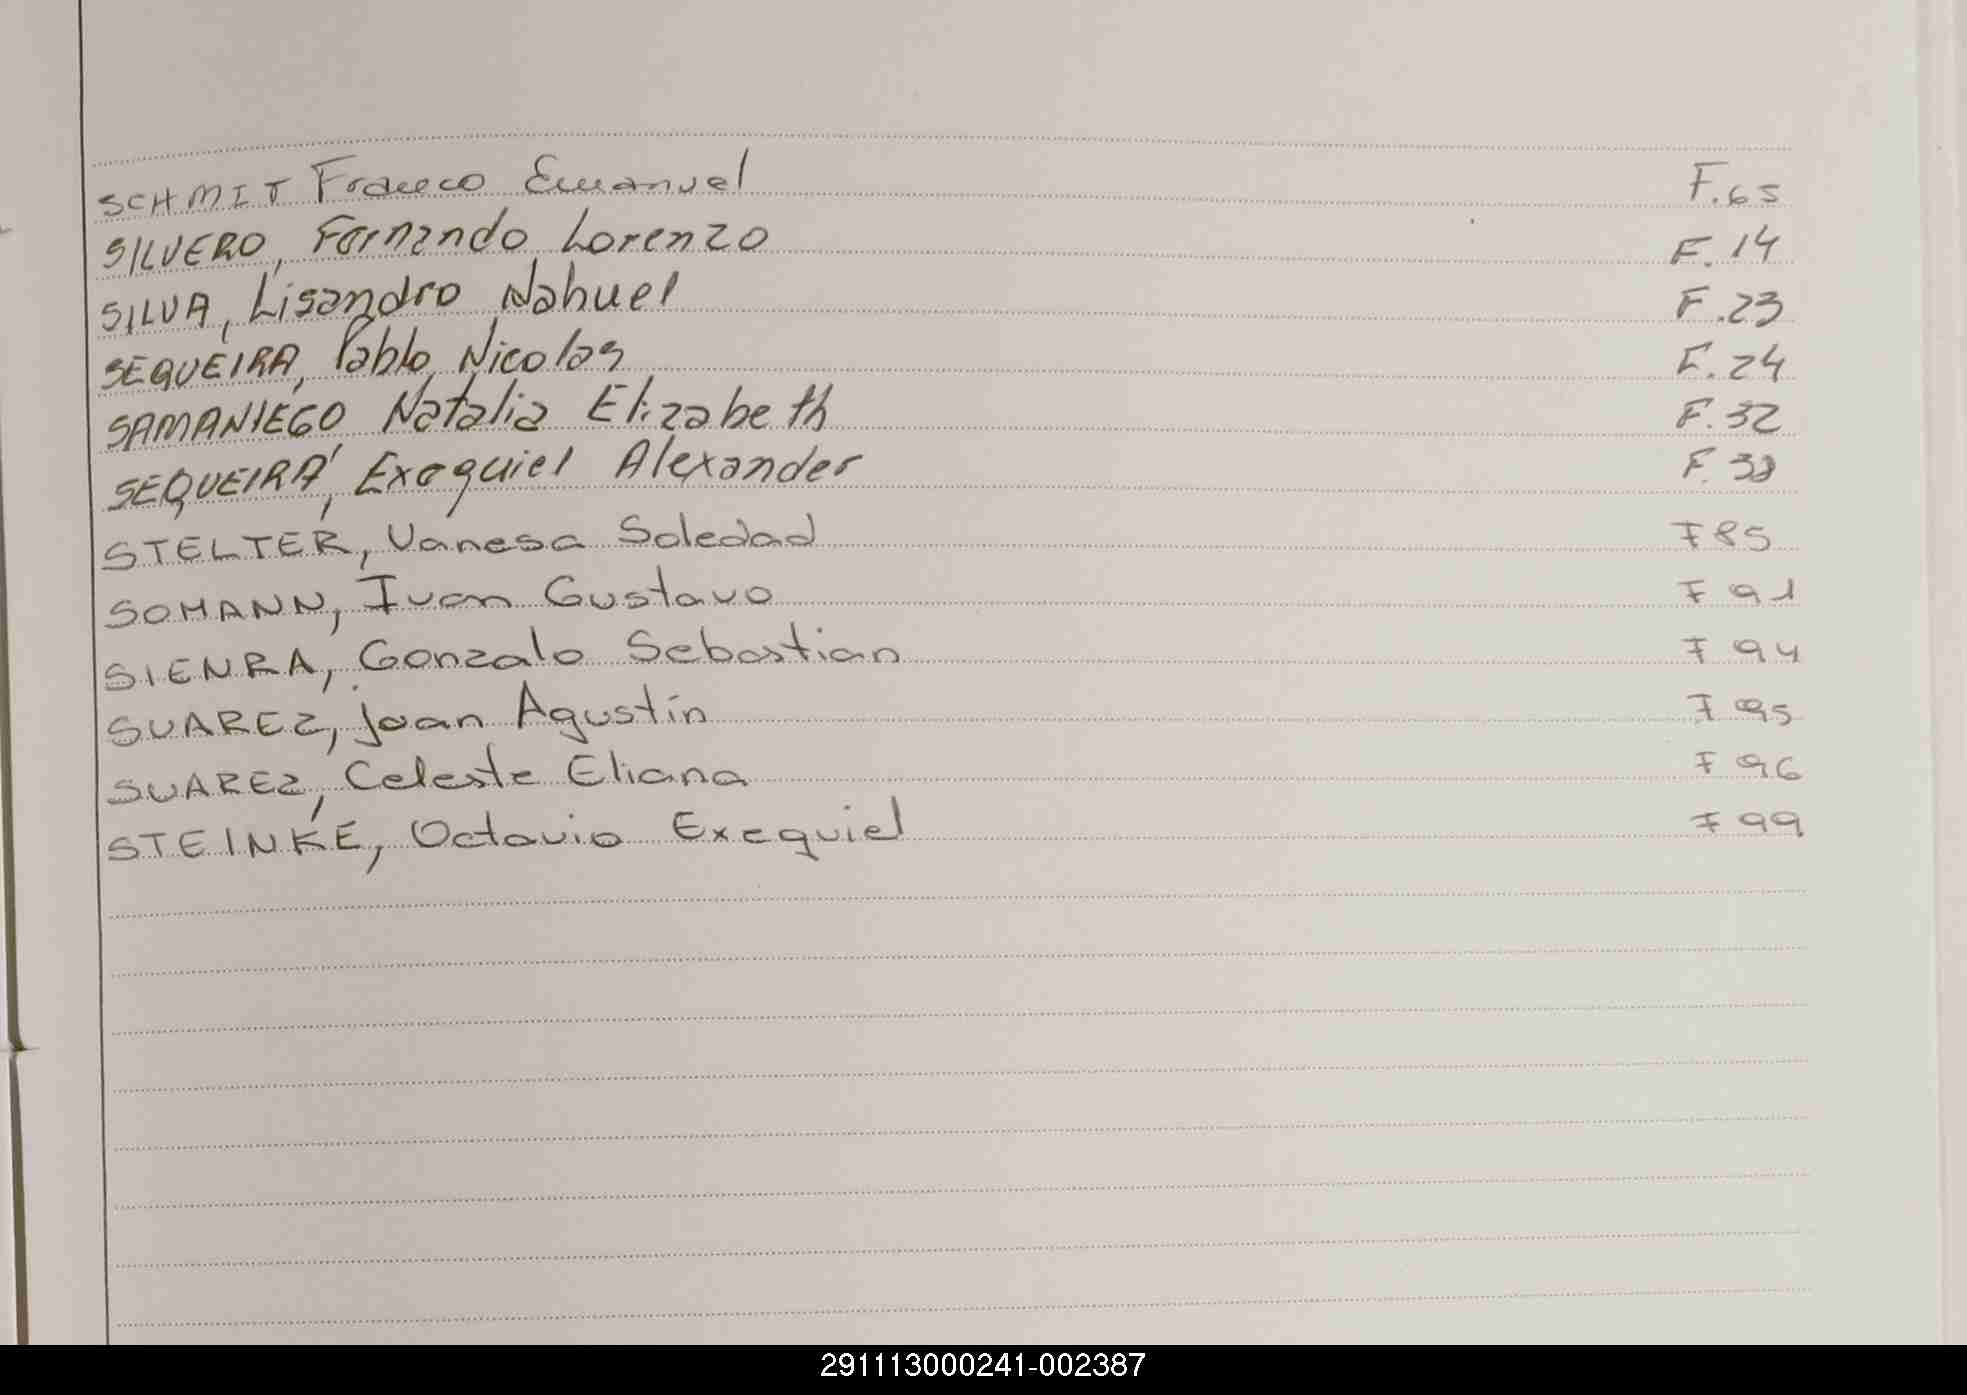 SCHMIT Franco Emanuel F.65
SILVERO, Fernando Lorenzo F.14
SILVA, Lisandro Nahuel F.23
SEQUEIRA, Pablo Nicolas F.24
SAMANIEGO Natalia Elizabeth F.32
SEQUEIRA, Exequiel Alexander F.38
STELTER, Vanesa Soledad F 85
SOHANN, Ivan Gustavo F 91
SIENRA, Gonzalo Sebastian F 94
SUAREZ, Joan Agustín F 95
SUAREZ, Celeste Eliana F 96
STEINKE, Octavio Exequiel F 99
291113000241-002387